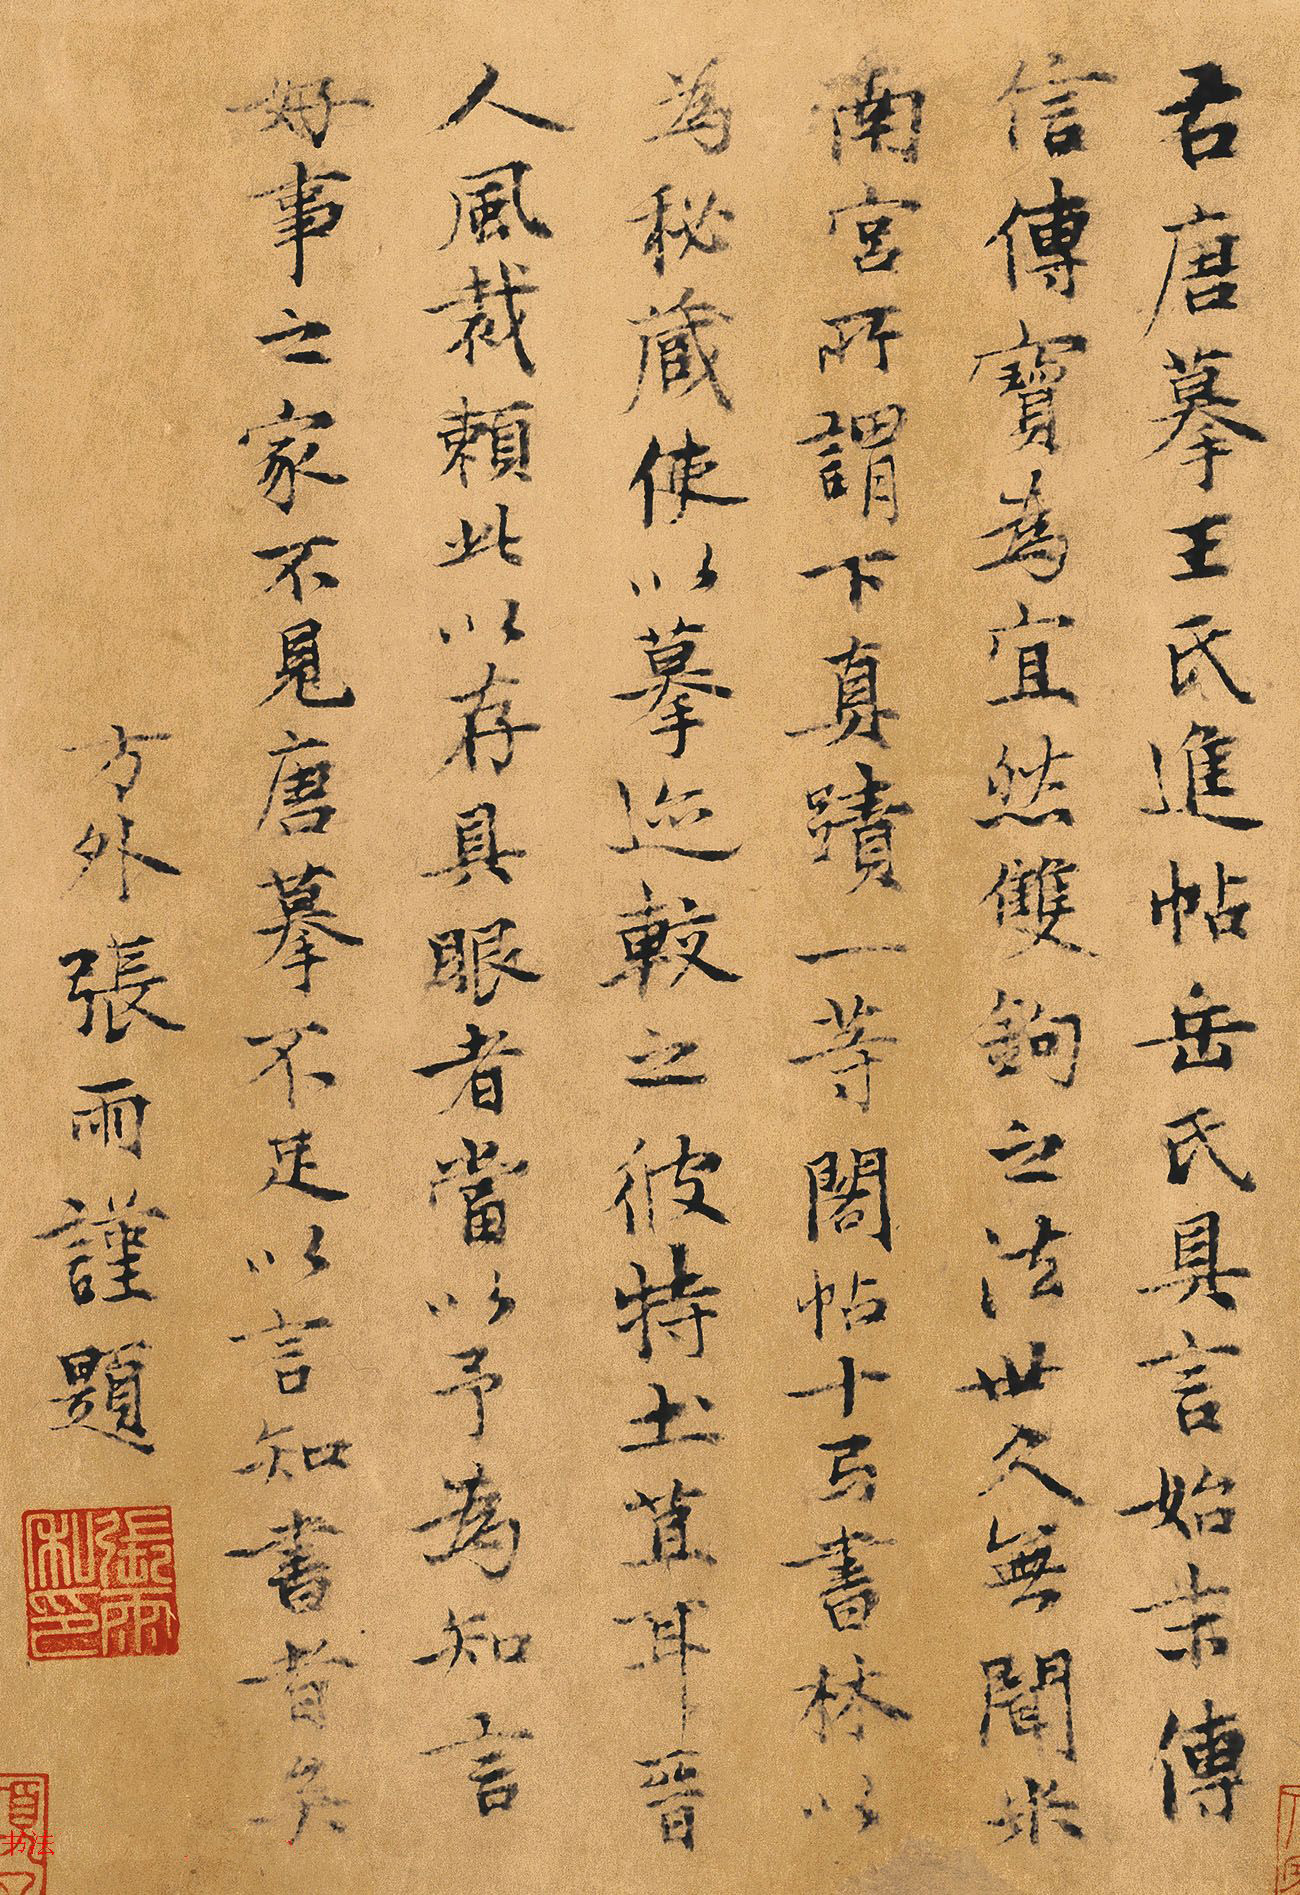 君唐摹王氏進帖岳氏具言始末傳
信傳寶為宜然雙鉤之法世久無聞米
南宮所謂下真蹟一等閣帖十弓書林以
為秘藏使以摹迹較之彼特土苴耳晉
人風裁賴此以存具眼者當以予為知言
好事之家不見唐摹不足以言知書者矣
方外張雨謹題
張雨私印
书法